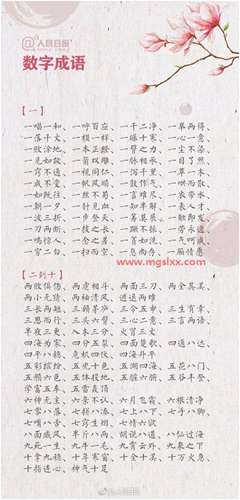 @人民日报
数字成语
【一】
一唱一和、一呼百应、一干二净、一举两得、
一落千丈、一模一样、一曝十寒、一心一意、
一败涂地、一本正经、一臂之力、一尘不染、
一见如故、一箭双雕、一脉相承、一目了然、
一窍不通、一视同仁、一泻千里、一草一木、
一成不变、一帆风顺、一鼓作气、一哄而散、
一如既往、一丝不苟、一言难尽、一衣带水、
一朝一夕、一针见血、一知半解、一表人才、
一波三折、一步登天、一筹莫展、一触即发、
一刀两断、一技之长、一蹶不振、一劳永逸、
一鸣惊人、一念之差、一贫如洗、一气呵成、
一穷二白、一扫而空、一息尚存、一厢情愿
www.mgslxx.com
【二到十】
两败俱伤、两虎相斗、两面三刀、两全其美、
两小无猜、两袖清风、进退两难
三长两短、三顾茅庐、三令五申、三生有幸、
三思而行、三头六臂、三心二意、三言两语、
半夜三更、入木三分、火冒三丈
四海为家、四分五裂、四面楚歌、四通八达、
四平八稳、危机四伏、四海升平
五彩缤纷、五光十色、五湖四海、五花八门、
五颜六色、五体投地、五脏六腑、五谷丰登、
学富五车、五雷轰顶
六神无主、六亲不认、六月飞霜、六根清净
七零八落、七拼八凑、七上八下、七手八脚、
七嘴八舌、七窍生烟、七情六欲
八面威风、半斤八两、胡说八道、八仙过海
九死一生、九牛一毛、九霄云外、九泉之下
十拿九稳、十年寒窗、十全十美、十万火急、
十指连心、神气十足
@人民日报